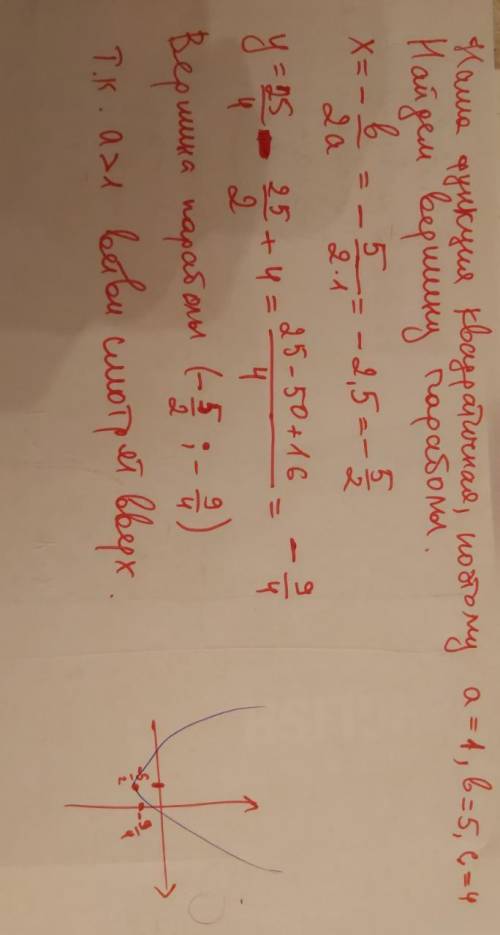 Наша функция квадратичная, поэтому a = 1, b = 5, c = 4
Найдем вершину параболы.
x = - b/2a = - 5/2·1 = - 2,5 = - 5/2
y = 25/4 - 25/2 + 4 = 25 - 50 + 16/4 = - 9/4
Вершина параболы (- 5/2 ; - 9/4)
Т.к. a>1 ветви смотрят вверх.
- 5/2
- 9/4